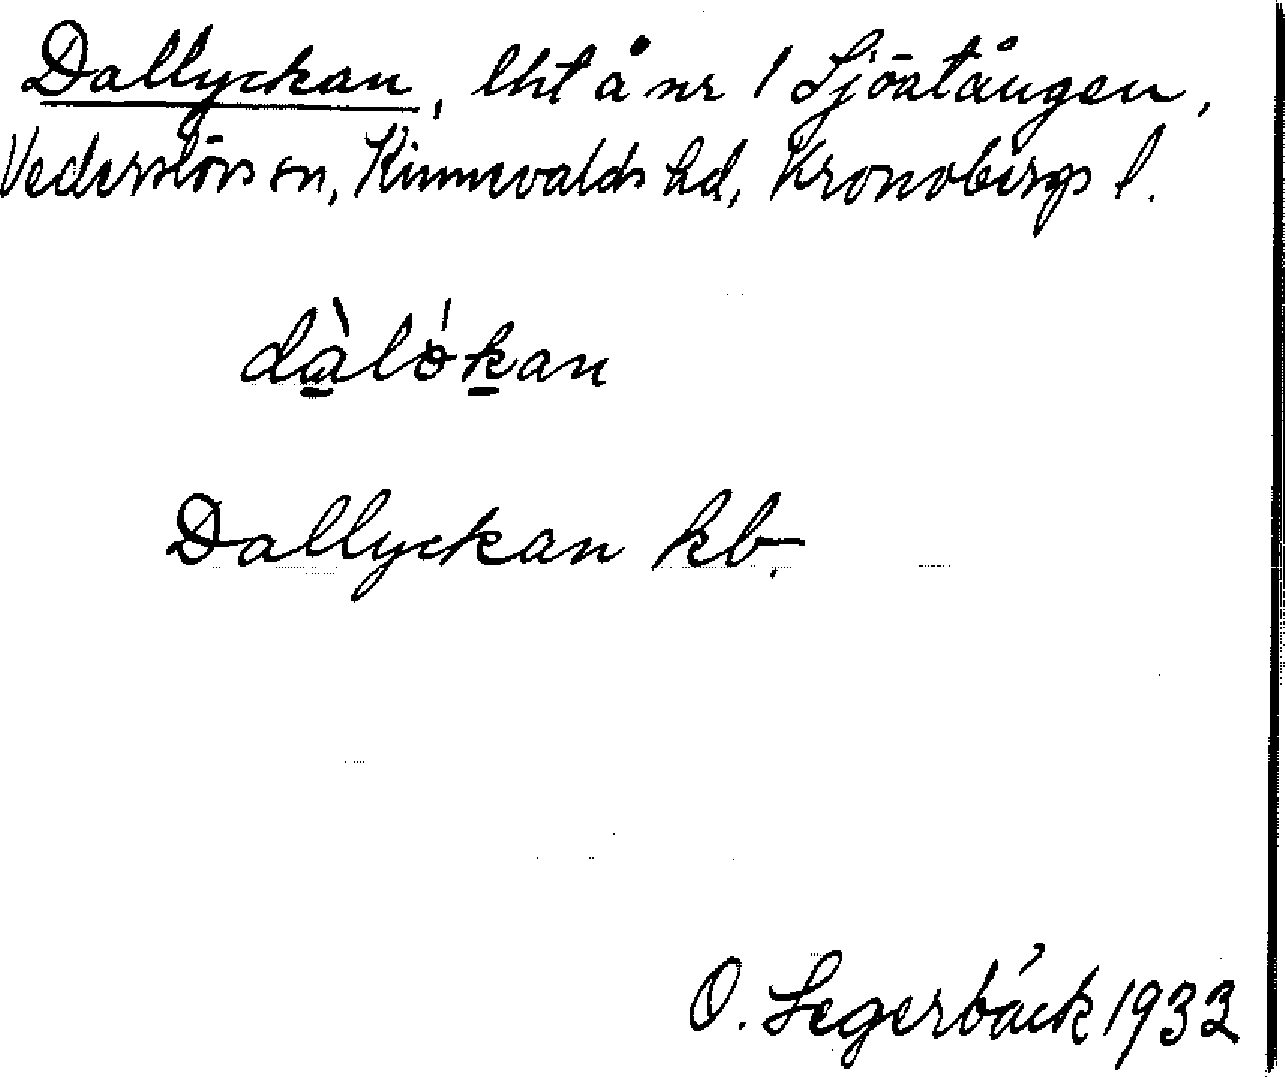 Dallyckan, lht å nr 1 Sjöatången,
Vederslövs sn, Kinnevalds hd, Kronobergs l.
dàlö́kan
Dallyckan kb.
O. Segerbäck 1933